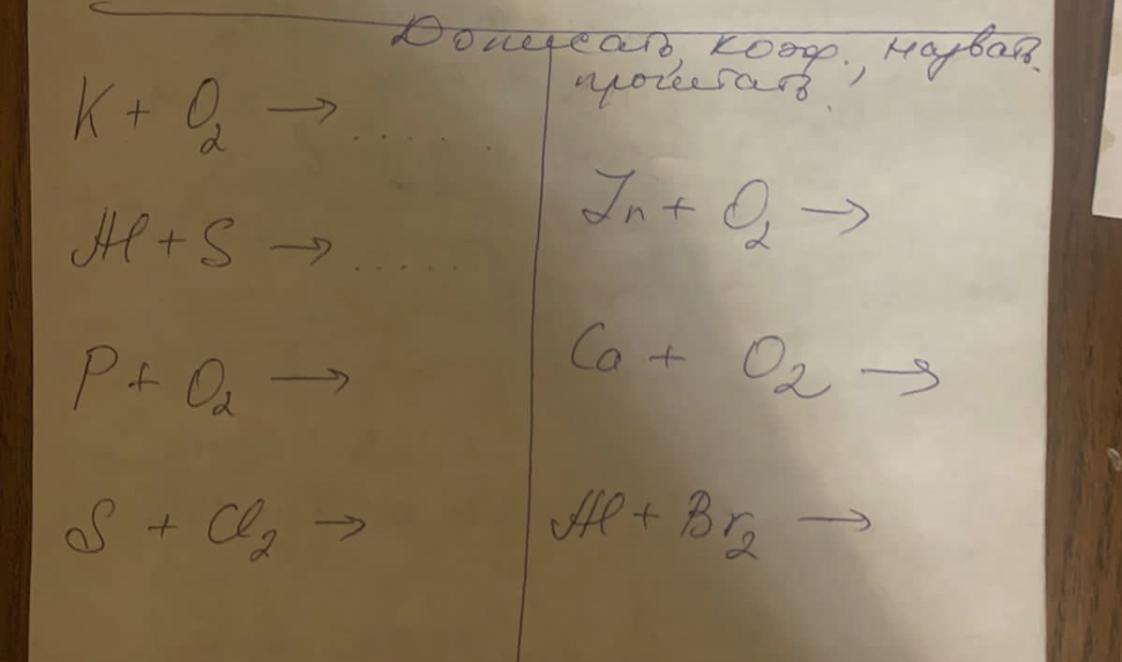 Дописать, коэф., назвать.
прочитать.
K + O₂ → .....
Al + S → .....
P + O₂ →
S + Cl₂ →
Zn + O₂ →
Ca + O₂ →
Al + Br₂ →